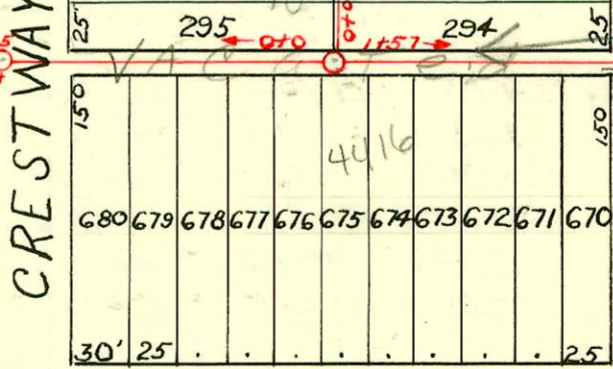 CRESTWAY
25' 295 0+0 0+0 1+57 294 25
VACATED
150 150
4416
680 679 678 677 676 675 674 673 672 671 670
30' 25 . . . . . . . . 25